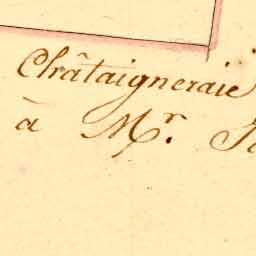 Châtaigneraie
à Mr.